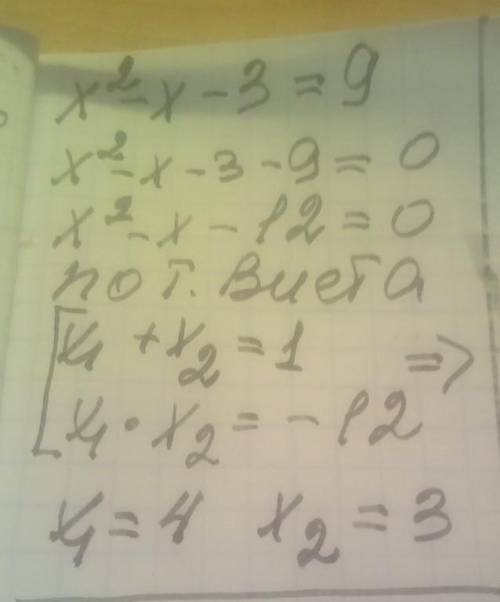 x² - x - 3 = 9
x² - x - 3 - 9 = 0
x² - x - 12 = 0
по т. Виета
[x₁ + x₂ = 1 =>
x₁ · x₂ = -12
x₁ = 4 x₂ = 3